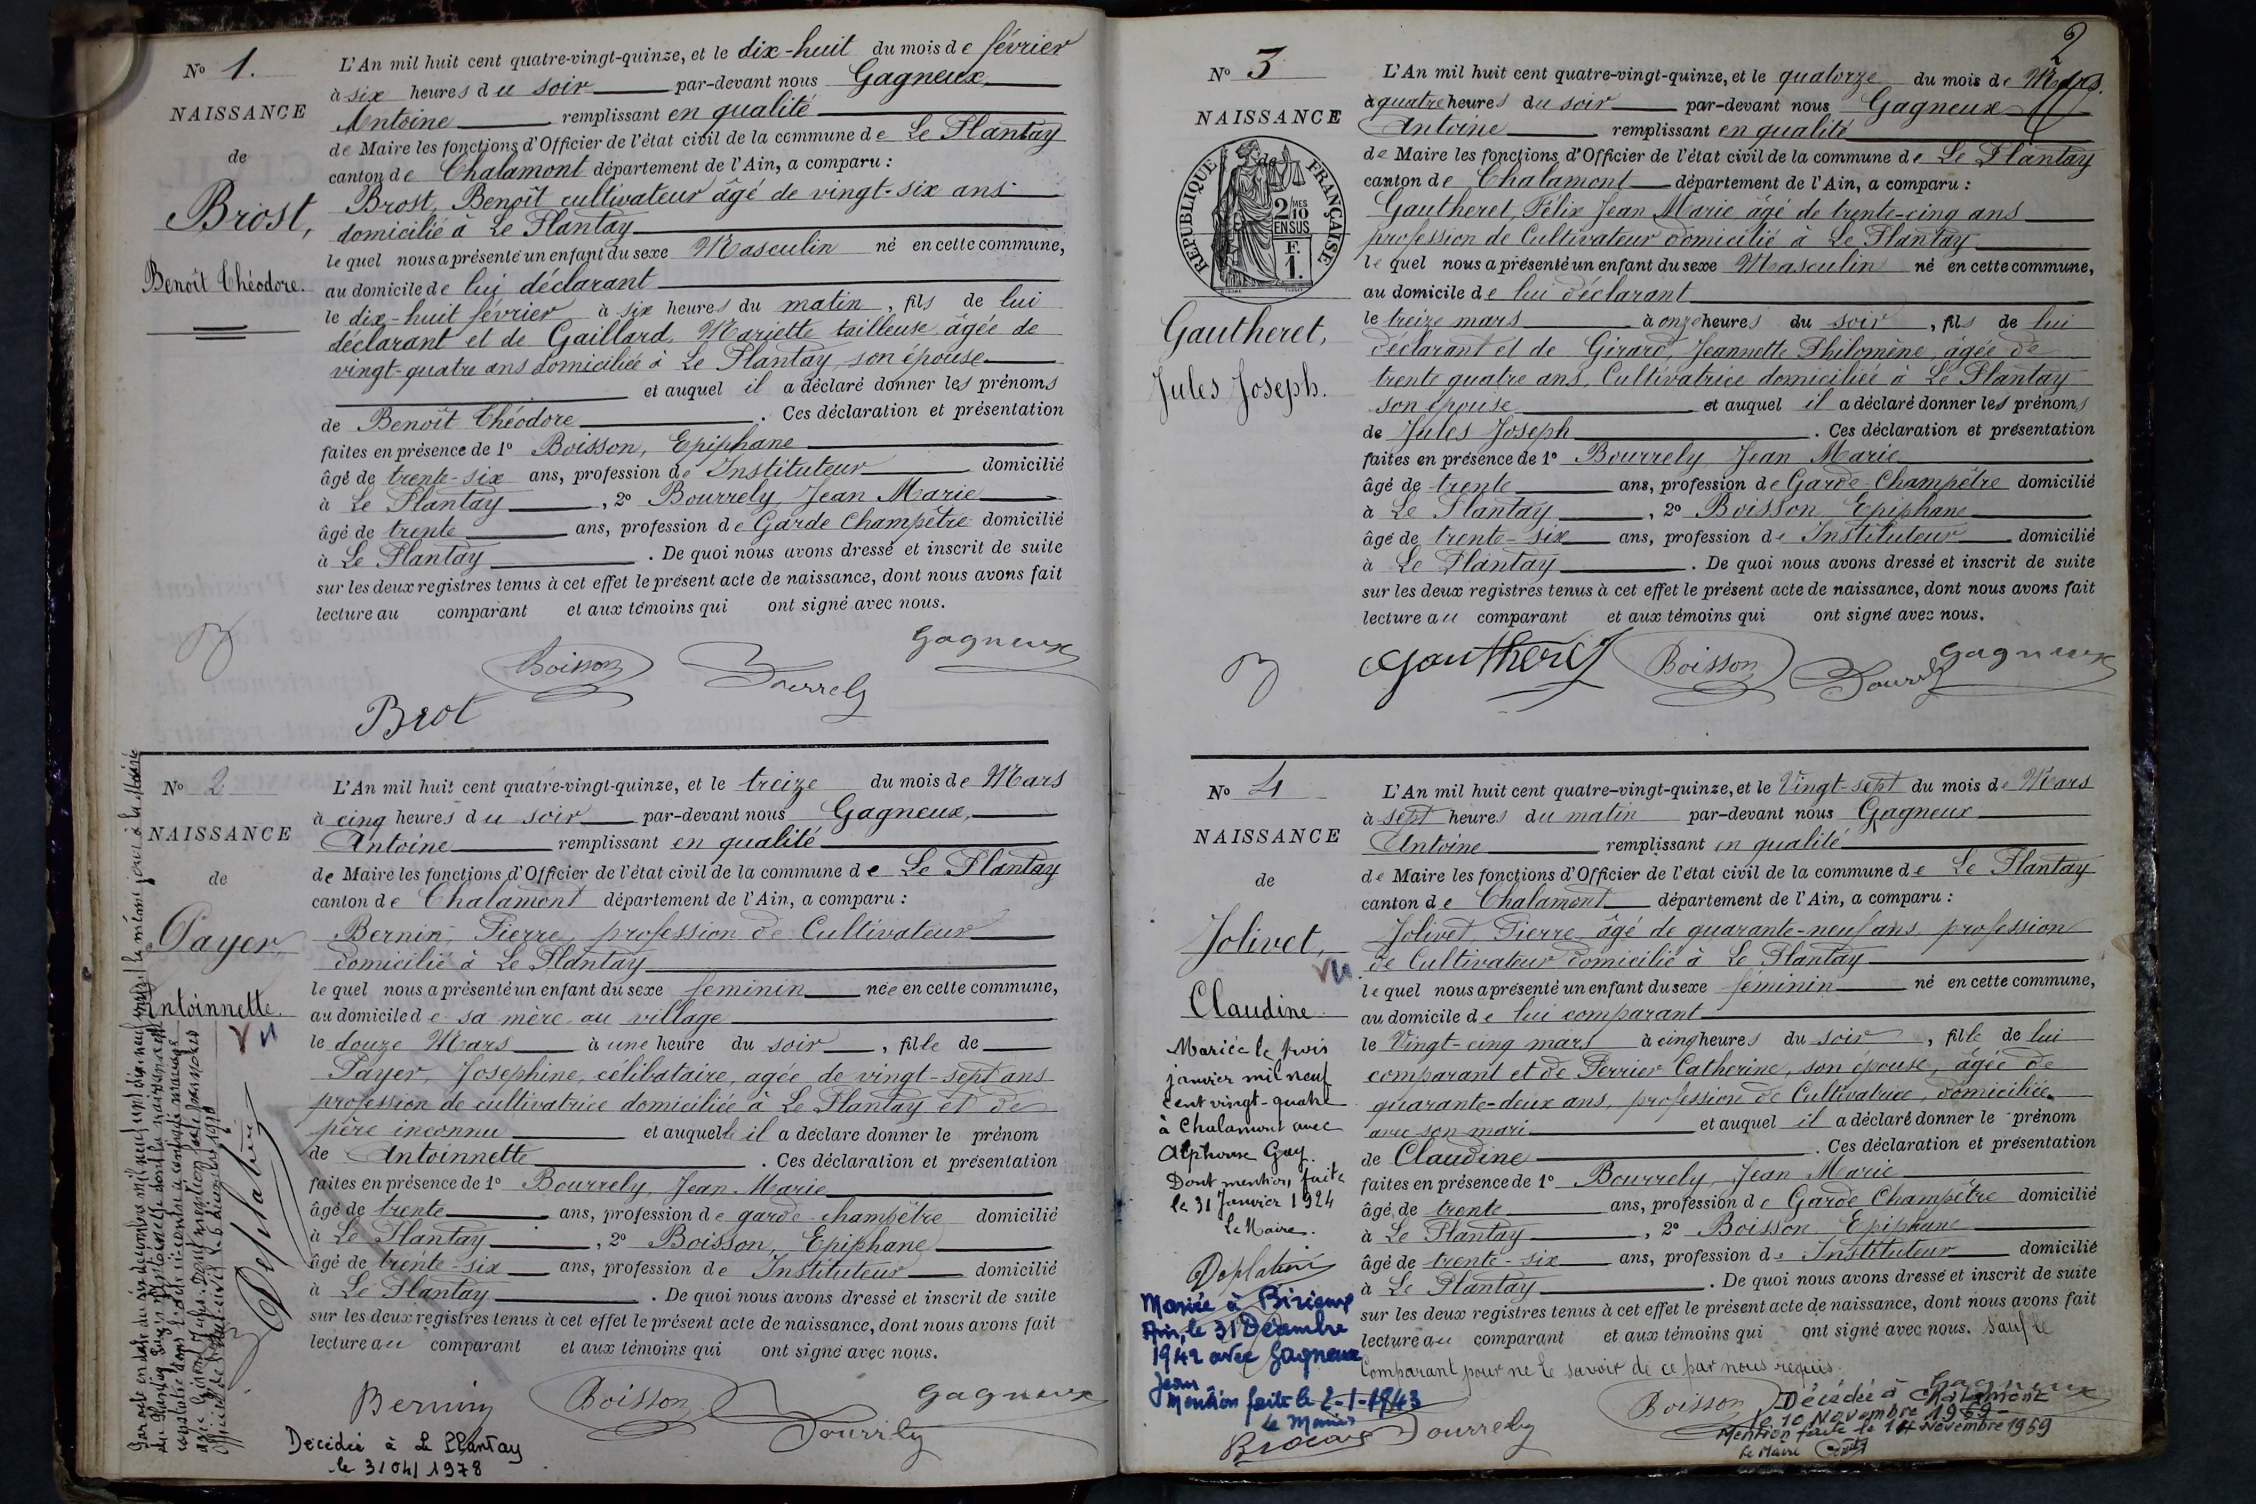 No 1.
NAISSANCE
de
Brost,
Benoît Théodore.
L'An mil huit cent quatre-vingt-quinze, et le dix-huit du mois de février
à six heures du soir par-devant nous Gagneux,
Antoine remplissant en qualité
de Maire les fonctions d'Officier de l'état civil de la commune de Le Plantay
canton de Chalamont département de l'Ain, a comparu :
Brost, Benoît cultivateur âgé de vingt-six ans
domicilié à Le Plantay
lequel nous a présenté un enfant du sexe Masculin né en cette commune,
au domicile de lui déclarant
le dix-huit février à six heures du matin, fils de lui
déclarant et de Gaillard, Mariette tailleuse âgée de
vingt-quatre ans domiciliée à Le Plantay, son épouse
et auquel il a déclaré donner les prénoms
de Benoît Théodore. Ces déclaration et présentation
faites en présence de 1° Boisson, Epiphane
âgé de trente-six ans, profession de Instituteur domicilié
à Le Plantay, 2° Bourrely Jean Marie
âgé de trente ans, profession de Garde Champêtre domicilié
à Le Plantay. De quoi nous avons dressé et inscrit de suite
sur les deux registres tenus à cet effet le présent acte de naissance, dont nous avons fait
lecture au comparant et aux témoins qui ont signé avec nous.
Gagneux
Boisson Bourrely
Brot
No 2
NAISSANCE
de
Payer,
Antoinnette.
Vu
L'An mil huit cent quatre-vingt-quinze, et le treize du mois de Mars
à cinq heures du soir par-devant nous Gagneux,
Antoine remplissant en qualité
de Maire les fonctions d'Officier de l'état civil de la commune de Le Plantay
canton de Chalamont département de l'Ain, a comparu :
Bernin, Pierre, profession de Cultivateur
domicilié à Le Plantay
lequel nous a présenté un enfant du sexe féminin née en cette commune,
au domicile de sa mère au village
le douze Mars à une heure du soir, fille de
Payer, Josephine, célibataire, agée de vingt-sept ans
profession de cultivatrice domiciliée à Le Plantay et de
père inconnu et auquelle il a déclare donner le prénom
de Antoinnette. Ces déclaration et présentation
faites en présence de 1° Bourrely, Jean Marie
âgé de trente ans, profession de garde-champêtre domicilié
à Le Plantay, 2° Boisson, Epiphane
âgé de trente-six ans, profession de Instituteur domicilié
à Le Plantay. De quoi nous avons dressé et inscrit de suite
sur les deux registres tenus à cet effet le présent acte de naissance, dont nous avons fait
lecture au comparant et aux témoins qui ont signé avec nous.
Bernin Boisson Bourrely Gagneux
Décédée à Le Plantay
le 3/04/1978
2
No 3
NAISSANCE
de
RÉPUBLIQUE FRANÇAISE
2/10 MES
EN SUS
F.
1.
Gautheret,
Jules Joseph.
L'An mil huit cent quatre-vingt-quinze, et le quatorze du mois de Mars.
à quatre heures du soir par-devant nous Gagneux
Antoine remplissant en qualité
de Maire les fonctions d'Officier de l'état civil de la commune de Le Plantay
canton de Chalamont département de l'Ain, a comparu :
Gautheret, Félix Jean Marie âgé de trente-cinq ans
profession de Cultivateur domicilié à Le Plantay
lequel nous a présenté un enfant du sexe Masculin né en cette commune,
au domicile de lui déclarant
le treize mars à onze heures du soir, fils de lui
déclarant et de Girard, Jeannette Philomène, âgée de
trente quatre ans, Cultivatrice domiciliée à Le Plantay
son épouse et auquel il a déclaré donner les prénoms
de Jules Joseph. Ces déclaration et présentation
faites en présence de 1° Bourrely Jean Marie
âgé de trente ans, profession de Garde-Champêtre domicilié
à Le Plantay, 2° Boisson Epiphane
âgé de trente-six ans, profession de Instituteur domicilié
à Le Plantay. De quoi nous avons dressé et inscrit de suite
sur les deux registres tenus à cet effet le présent acte de naissance, dont nous avons fait
lecture au comparant et aux témoins qui ont signé avec nous.
Gautheret Boisson Bourrely Gagneux
No 4
NAISSANCE
de
Jolivet,
Vu
Claudine
Mariée le trois
janvier mil neuf
cent vingt-quatre
à Chalamont avec
Alphonse Gay.
Dont mention faite
le 31 Janvier 1924
Le Maire.
Mariée à Birieux
Ain, le 31 Décembre
1942 avec Gagneux
Jean
Mention faite le 2-1-1943
Le Maire
L'An mil huit cent quatre-vingt-quinze, et le Vingt-sept du mois de Mars
à sept heures du matin par-devant nous Gagneux
Antoine remplissant en qualité
de Maire les fonctions d'Officier de l'état civil de la commune de Le Plantay
canton de Chalamont département de l'Ain, a comparu :
Jolivet, Pierre, âgé de quarante-neuf ans, profession
de Cultivateur domicilié à Le Plantay
lequel nous a présenté un enfant du sexe féminin né en cette commune,
au domicile de lui comparant
le Vingt-cinq mars à cinq heures du soir, fille de lui
comparant et de Perrier Catherine, son épouse, âgée de
quarante-deux ans, profession de Cultivatrice, domiciliée
avec son mari et auquel il a déclaré donner le prénom
de Claudine. Ces déclaration et présentation
faites en présence de 1° Bourrely, Jean Marie
âgé de trente ans, profession de Garde Champêtre domicilié
à Le Plantay, 2° Boisson Epiphane
âgé de trente-six ans, profession de Instituteur domicilié
à Le Plantay. De quoi nous avons dressé et inscrit de suite
sur les deux registres tenus à cet effet le présent acte de naissance, dont nous avons fait
lecture au comparant et aux témoins qui ont signé avec nous. Sauf le
Comparant pour ne le savoir de ce par nous requis.
Bourrely Boisson Gagneux
Décédée à Chalamont
le 10 Novembre 1959
Mention faite le 14 Novembre 1959
Le Maire